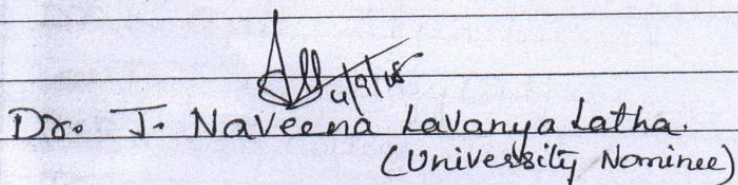 4/9/18
Dr. J. Naveena Lavanya Latha.
(University Nominee)